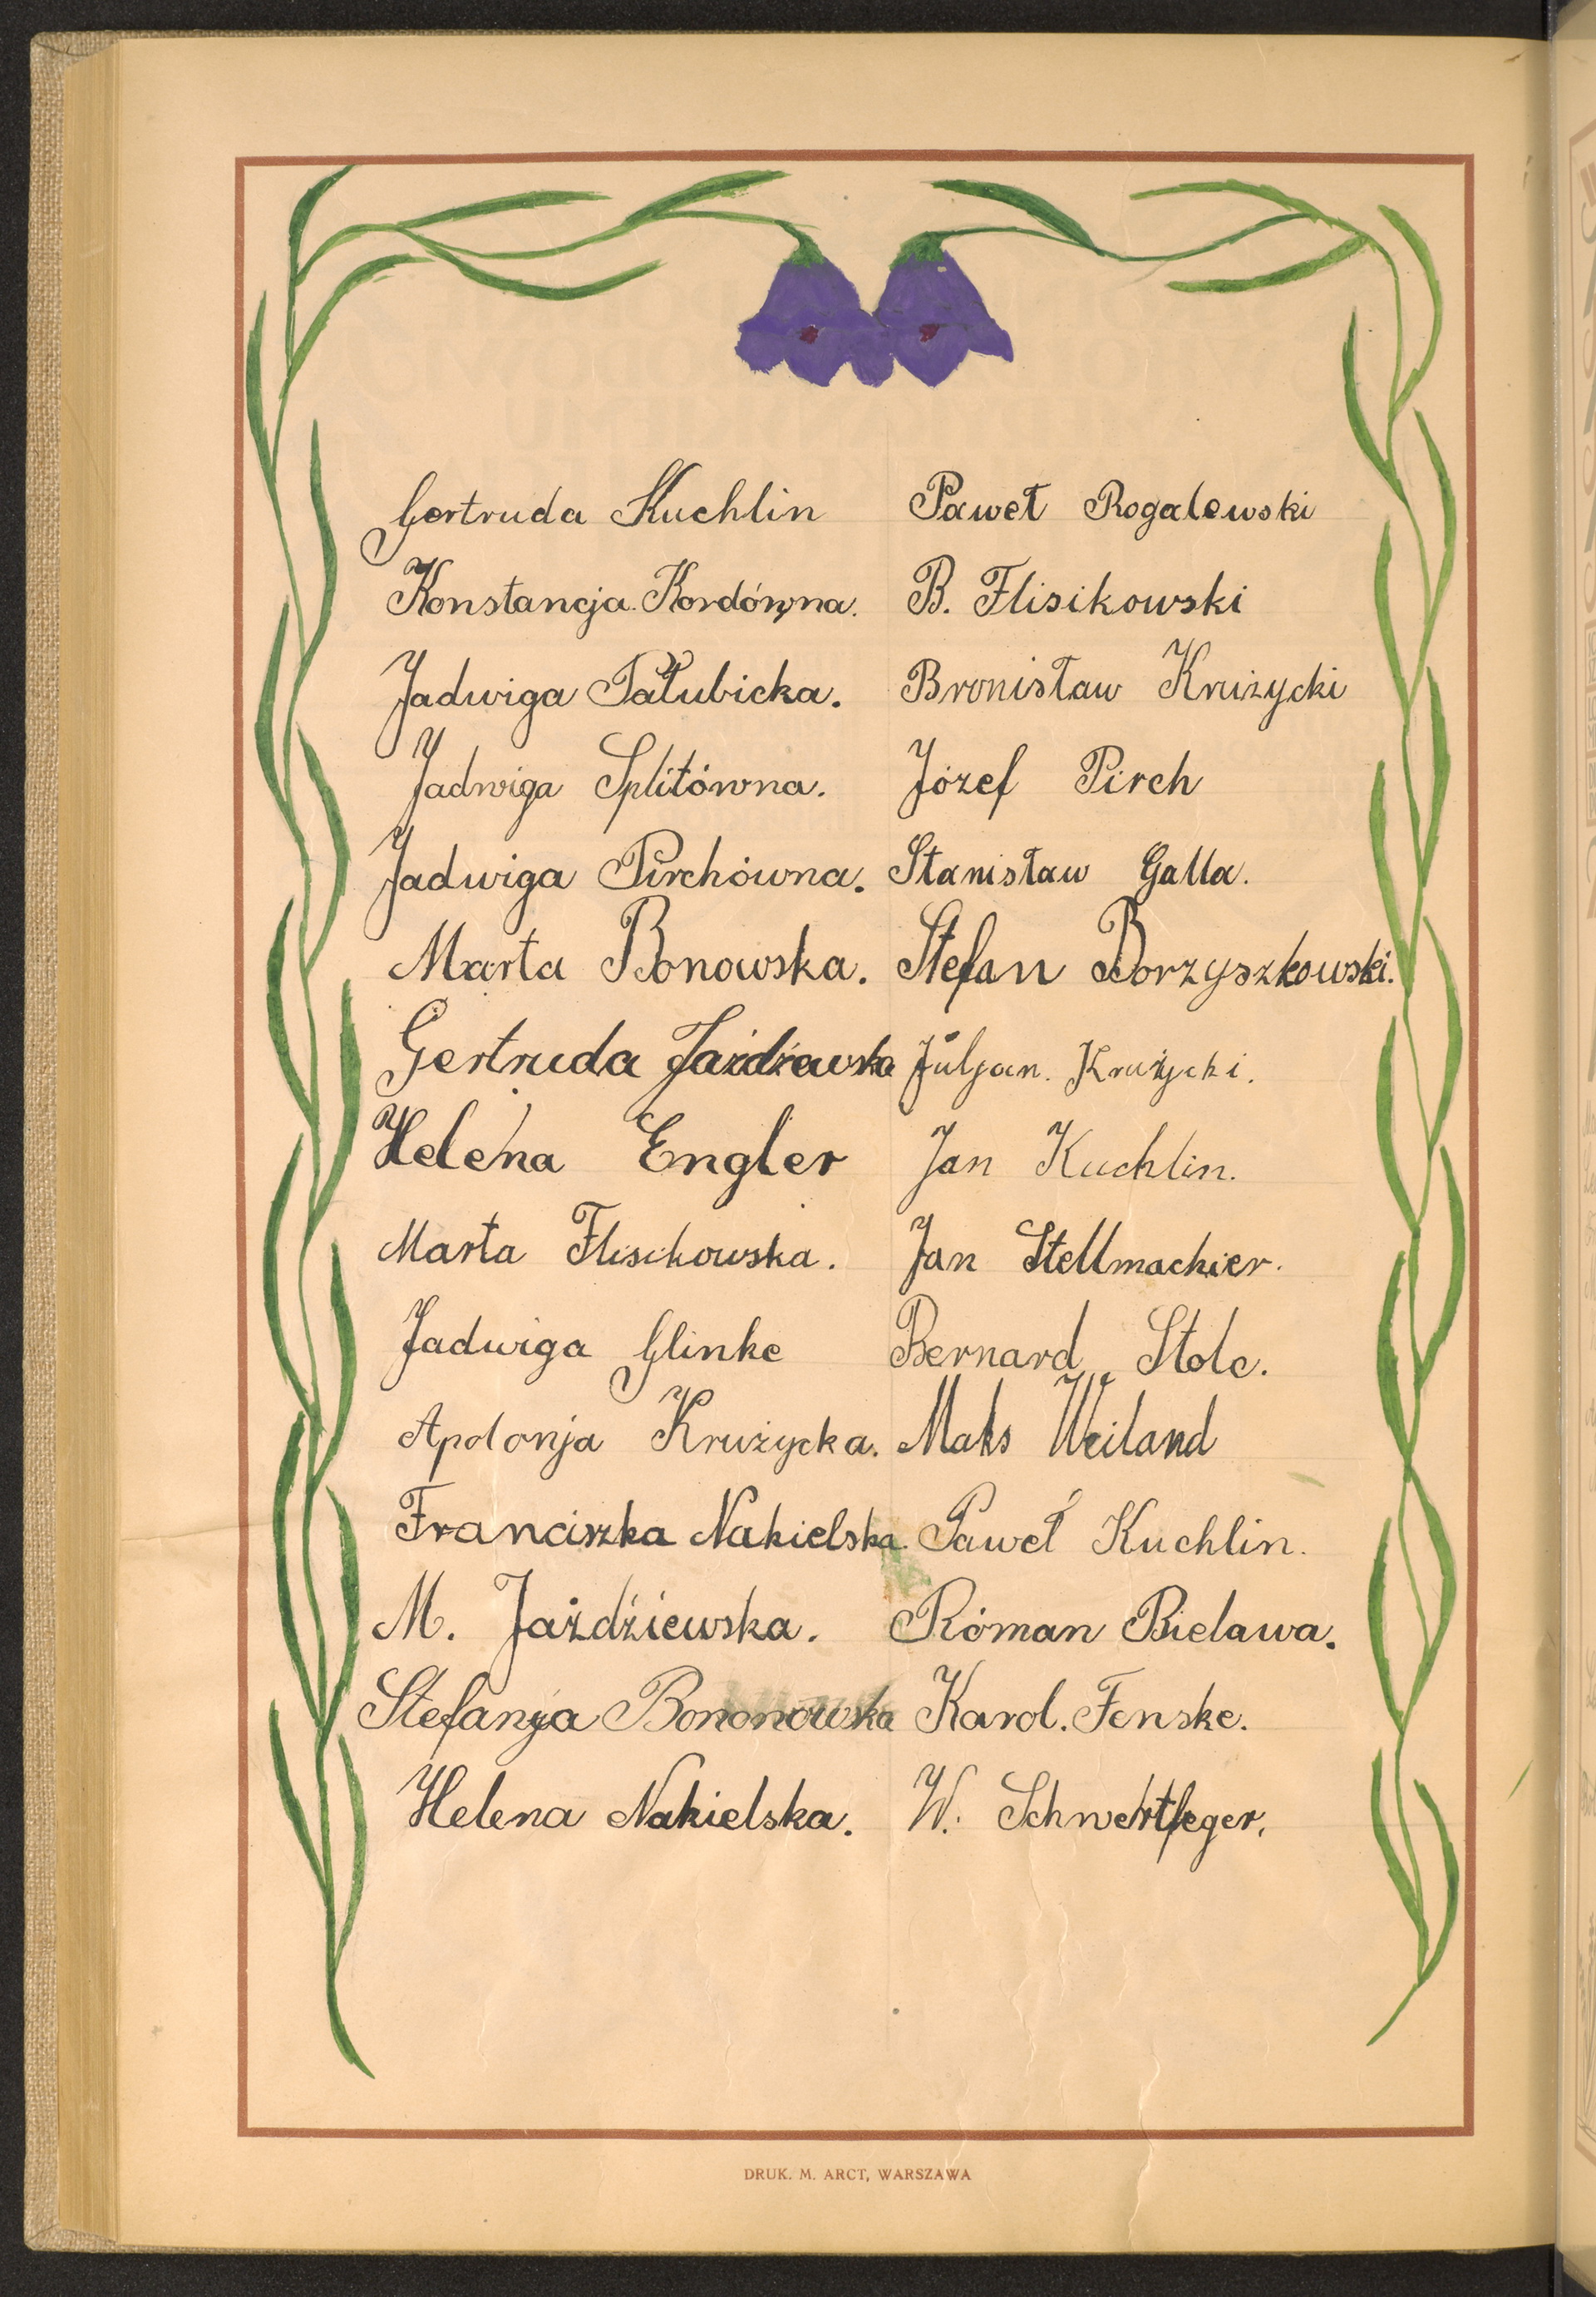 Gertruda Kuchlin
Konstancja Kordówna.
Jadwiga Pałubicka.
Jadwiga Splitówna.
Jadwiga Pirchówna.
Marta Bonowska.
Gertruda Jażdżewska
Helena Engler
Marta Flisikowska.
Jadwiga Glinke
Apolonja Krużycka.
Franciszka Nakielska.
M. Jażdżiewska.
Stefanja Bononowska
Helena Nakielska.
Paweł Rogalewski
B. Flisikowski
Bronisław Krużycki
Józef Pirch
Stanisław Galla.
Stefan Borzyszkowski.
Juljan. Krużycki.
Jan Kuchlin.
Jan Stellmachier.
Bernard Stolc.
Maks Weiland
Paweł Kuchlin.
Róman Bielawa.
Karol. Fenske.
W. Schwertfeger.
DRUK. M. ARCT, WARSZAWA